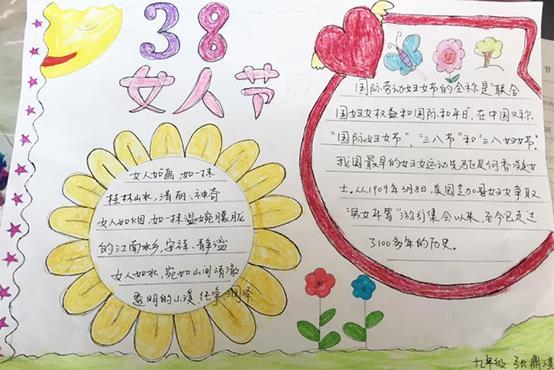 38
女人节
女人如画,如一抹
桂林山水,清丽、神奇
女人如烟,如一抹温婉朦胧
的江南水乡,安祥、静谧
女人如水,宛如山间清澈
聪明的小溪,纯净、润泽
国际劳动妇女节的全称是"联合
国妇女权益和国际和平日",在中国又称
"国际妇女节"、"三八节"和"三八妇女节"。
我国最早的妇女运动先驱是何香凝女
士。从1909年3月8日,美国芝加哥妇女争取
"男女平等"游行集会以来,至今已走过
3100多年的历史。
九年级 张鼎